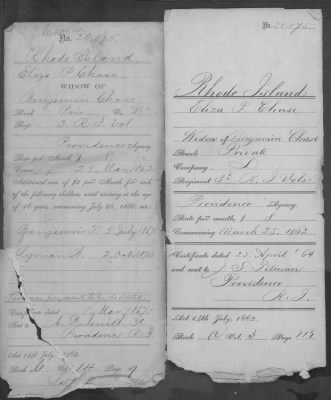 No. 20,095
Rhode Island
Eliza P. Chase
WIDOW OF
Benjamin Chase
Rank Priv Co.
Reg. 3. R.I. Vol
Providence Agency
Rate per Month, $ 8
Com'g 25 Mar, 1863
Additional sum of $2 per month for each
of the following children, until arriving at the age
of 16 years, commencing July 25, 1866, viz:
Benjamin F. 5 July '67
Lyman 2 Oct 1870
Certificate dated 1 May 1867
Sent to
Providence R.I.
Act 14th July, 1862.
Book Vol. Page
No. 20,095
Rhode Island
Eliza P. Chase
Widow of Benjamin Chase
Rank Private
Company
Regiment 3d R. I. Vols
Providence Agency.
Rate per month, $ 8
Commencing March 25, 1863
Certificate dated 23 April '64
and sent to J. S. Pitman
Providence
R.I.
Act 14th July, 1862.
Book A Vol. 3 Page 119